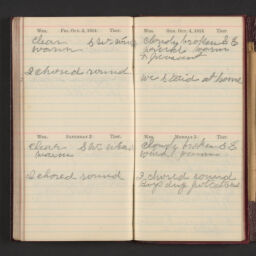 Wea. Fri. Oct. 2, 1914 Ther.
Clear S W wind
warm
I chored round
Wea. Saturday 3 Ther.
Clear S W wind
warm
I chored round
Wea. Sun. Oct. 4, 1914 Ther.
Cloudy broken S E
wind warm
& pleasant
we staid at home
Wea. Monday 5 Ther.
Cloudy broken S E
wind warm
I chored round
dug potatoes